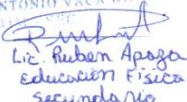 ANTONIO VACA D
Lic. Ruben Apaza
Educación Física
Secundario